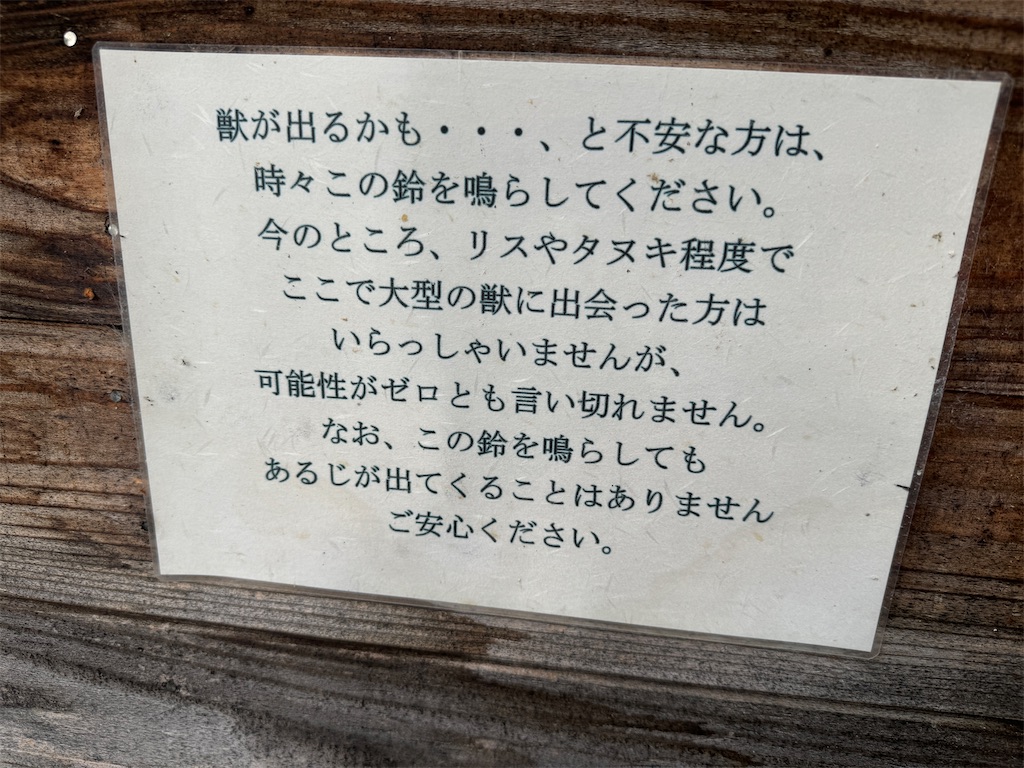 獣が出るかも・・・、と不安な方は、
時々この鈴を鳴らしてください。
今のところ、リスやタヌキ程度で
ここで大型の獣に出会った方は
いらっしゃいませんが、
可能性がゼロとも言い切れません。
なお、この鈴を鳴らしても
あるじが出てくることはありません
ご安心ください。